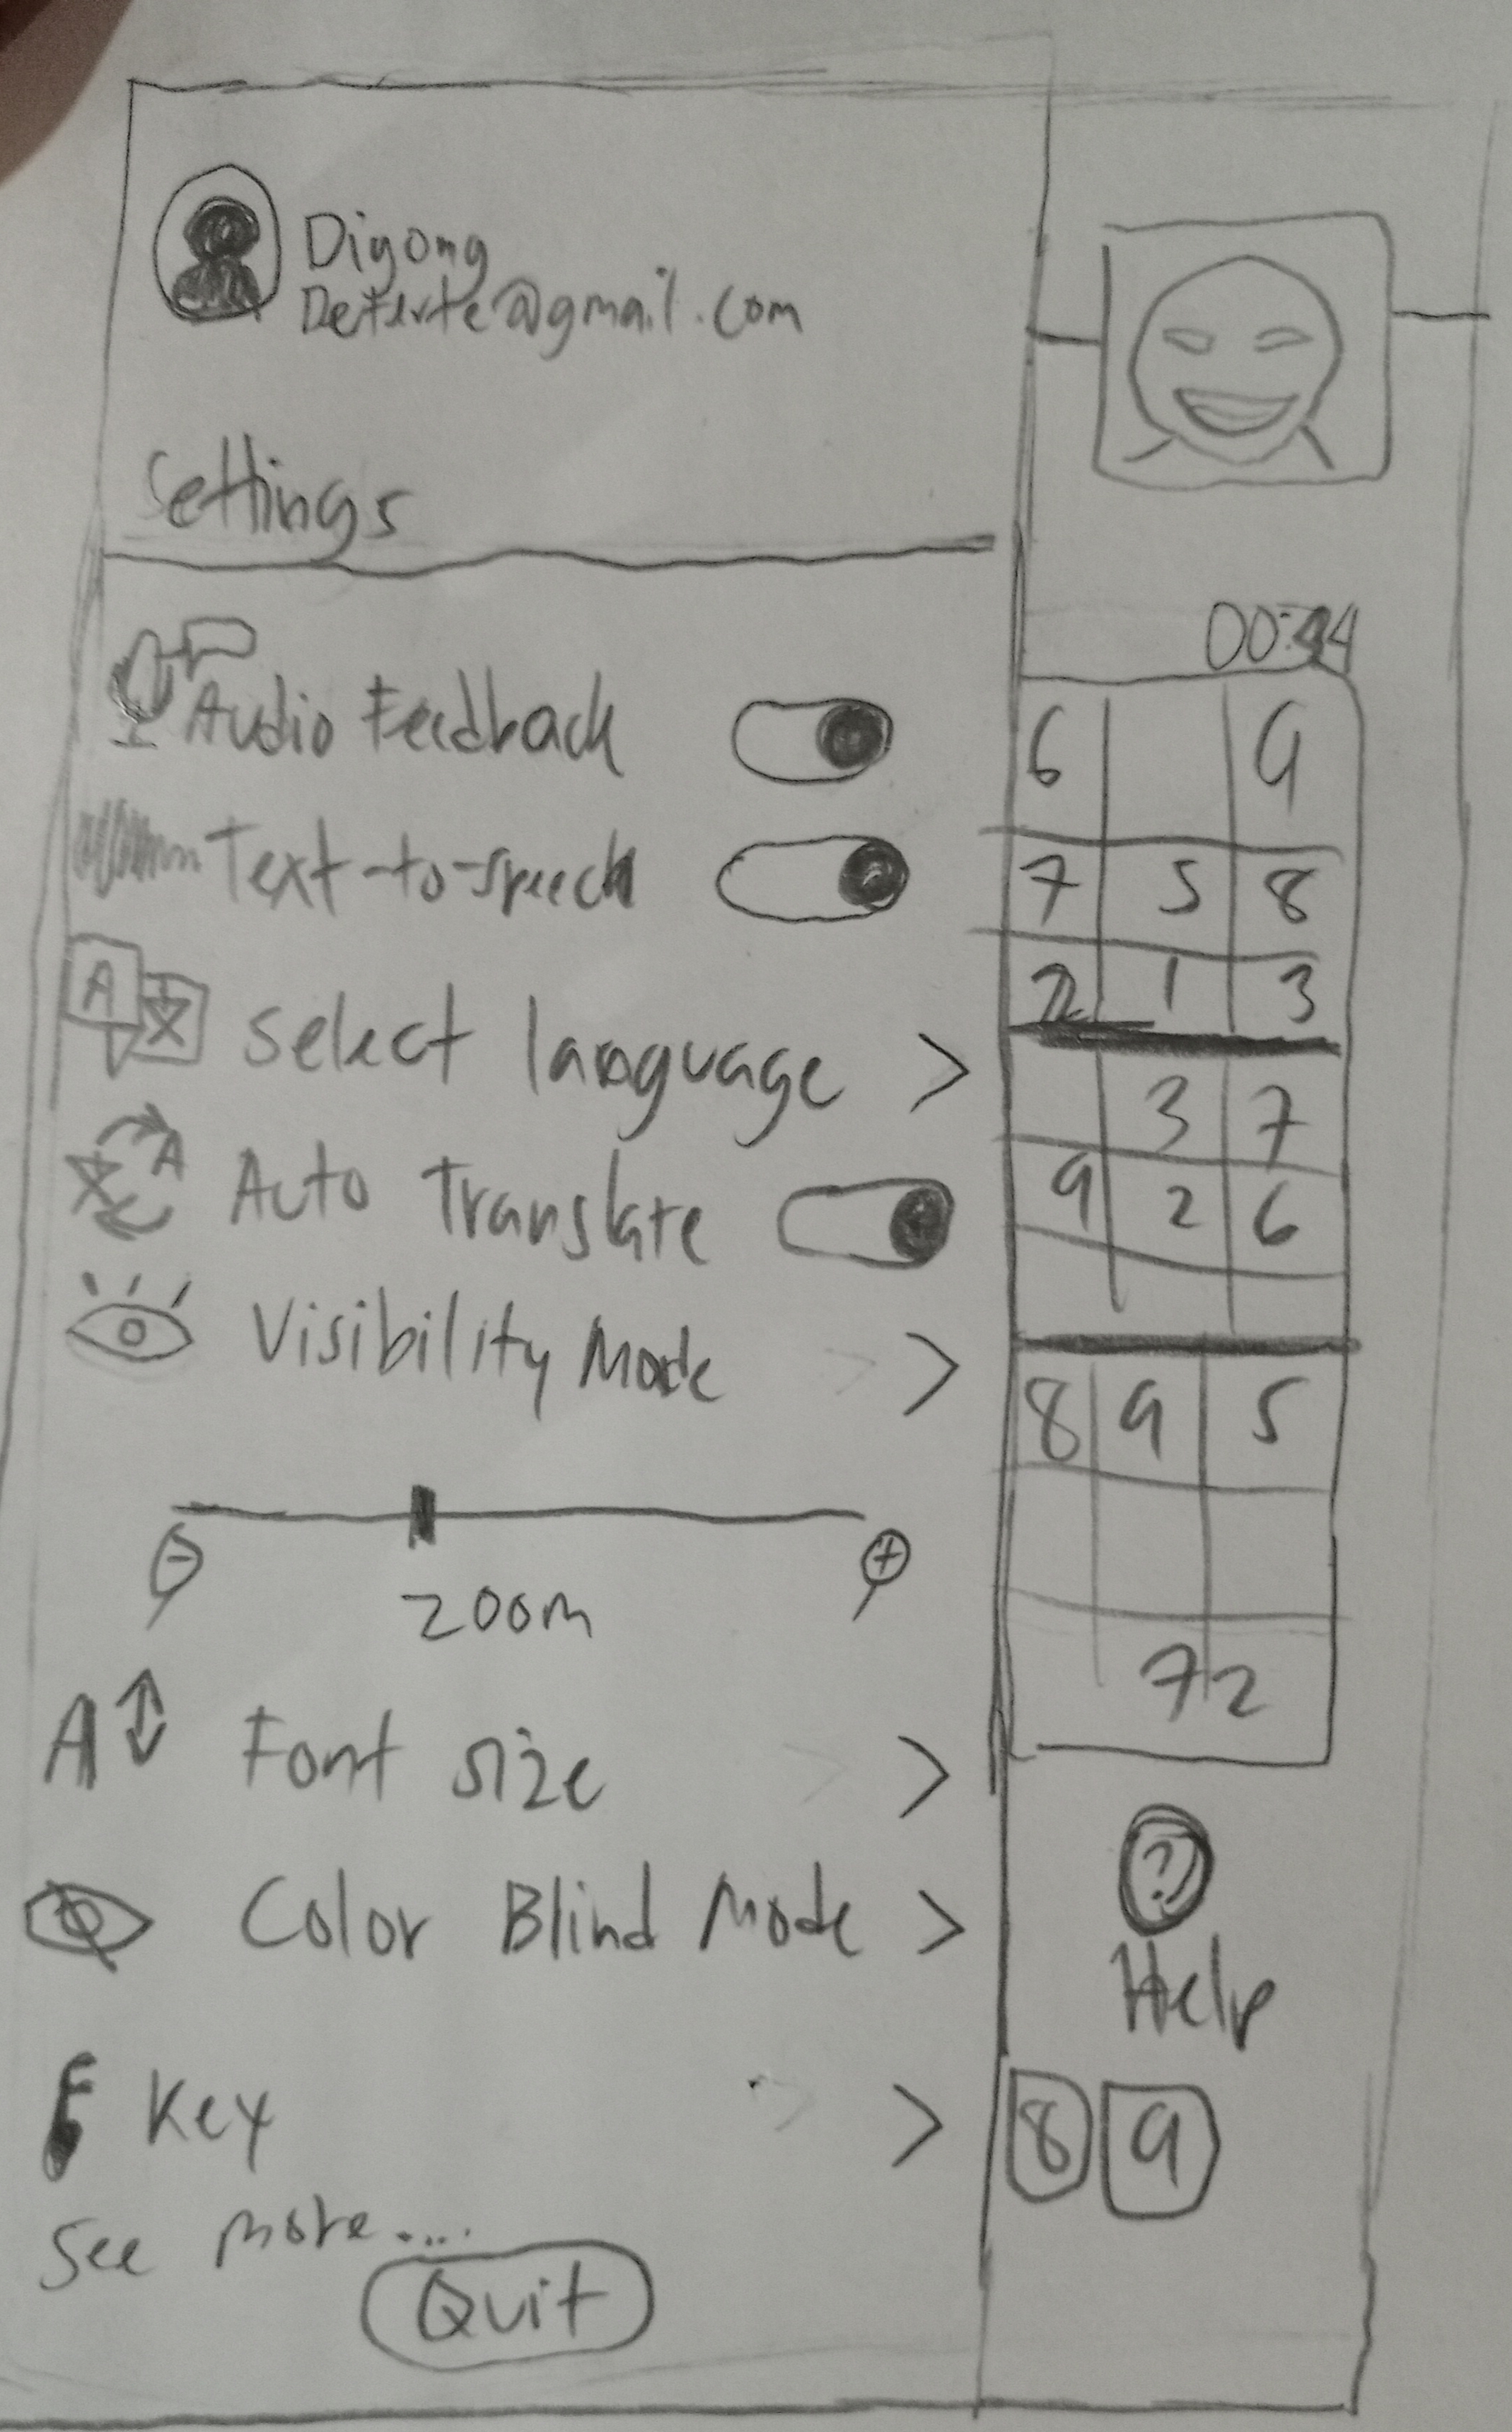 Digong
Deterte@gmail.com
Settings
Audio Feedback
Text-to-speech
A
Select language >
A
Auto Translate
Visibility Mode >
- +
zoom
A Font size >
Color Blind Mode >
Key >
See more....
Quit
6 9
7 5 8
2 1 3
3 7
9 2 6
8 9 5
7 2
?
Help
8 9